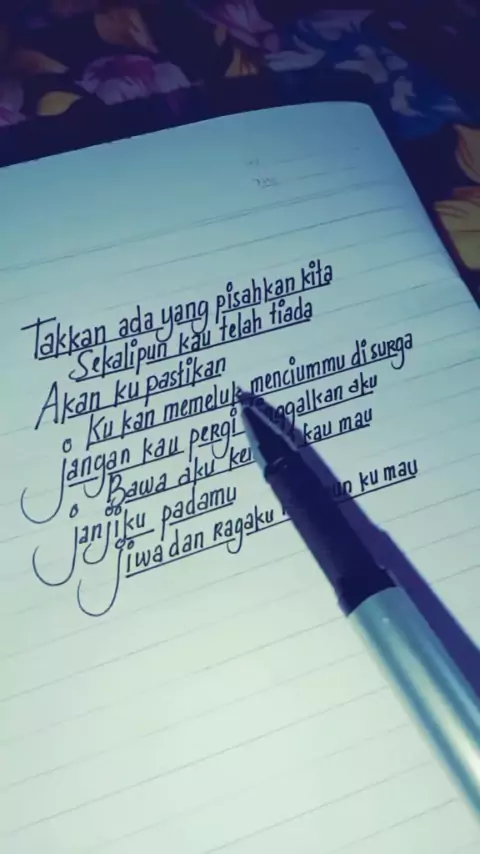 Takkan ada yang pisahkan kita
Sekalipun kau telah tiada
Akan ku pastikan
Ku kan memeluk menciummu di surga
jangan kau pergi aku
Bawa aku kau mau
janjiku padamu
jiwa dan Ragaku ku mau